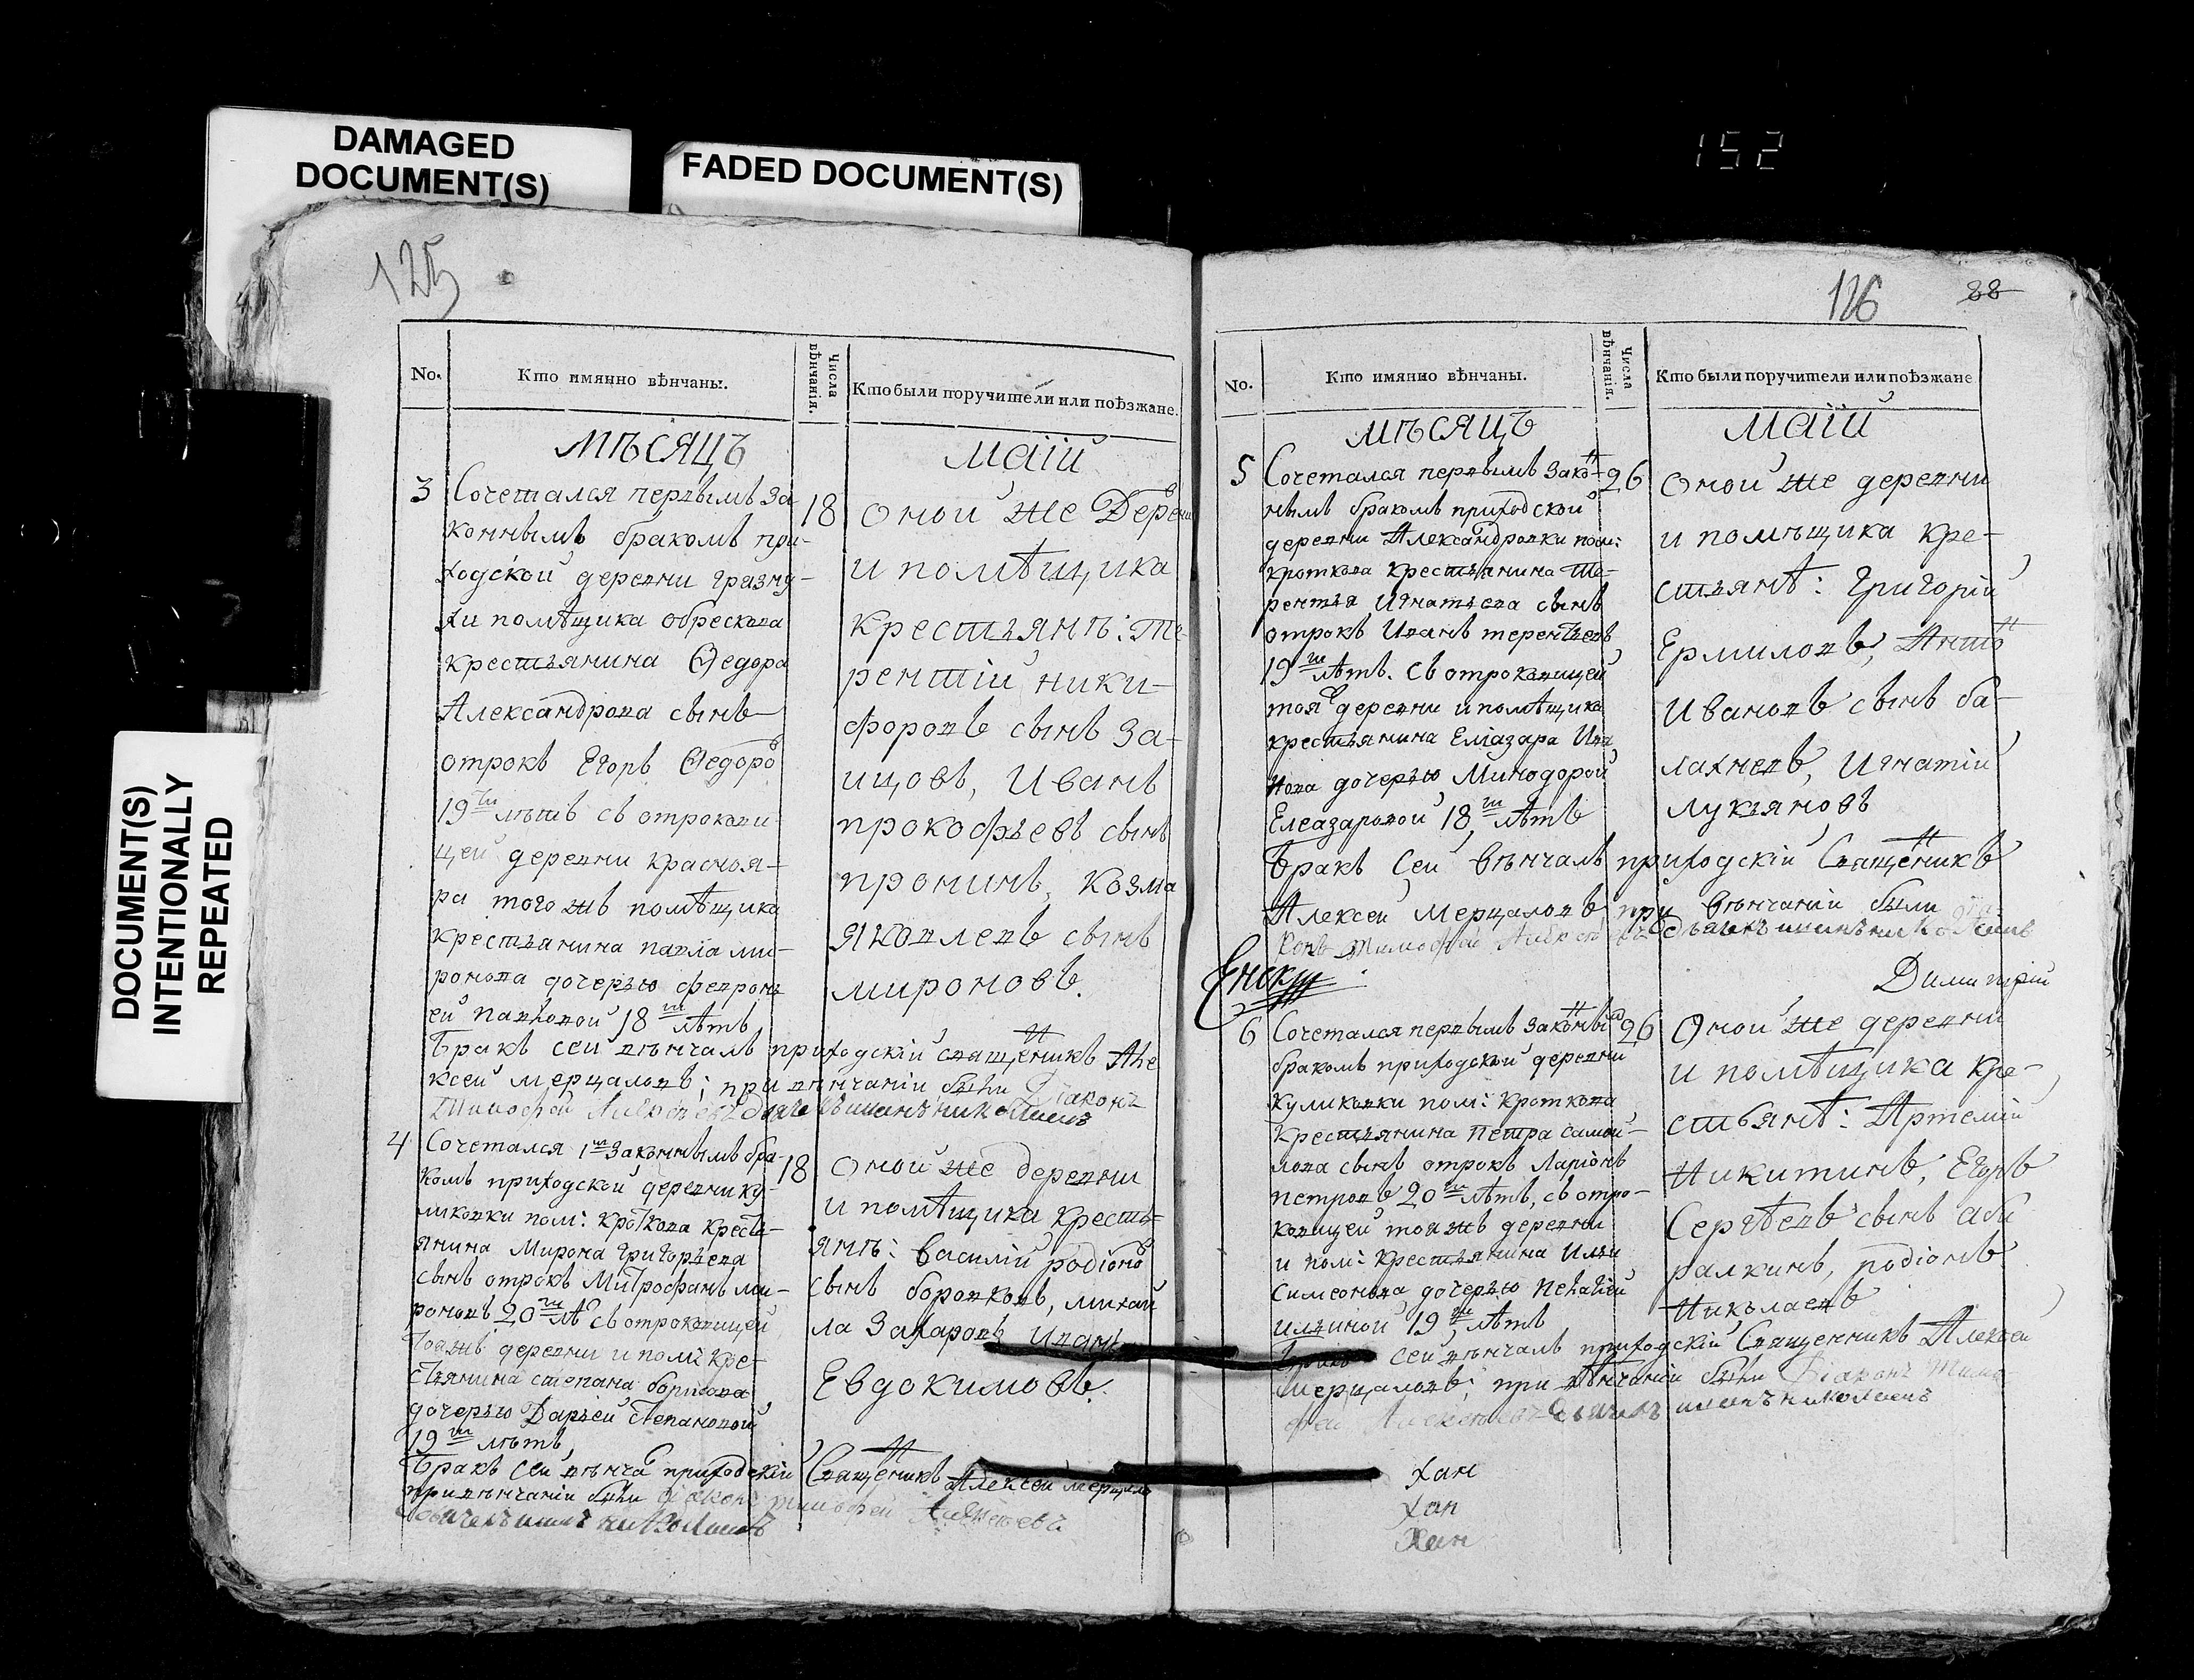 DAMAGED
DOCUMENT(S)
FADED DOCUMENT(S)
DOCUMENT(S)
INTENTIONALLY
REPEATED
152
125
No.
Кто имянно вѣнчаны.
Числа
вѣнчанія.
Кто были поручители или поѣзжане.
мѣсяцъ
маій
3
Сочетался первымъ за
коннымъ бракомъ при-
ходской деревни грязну-
хи помѣщика обрескова
крестьянина Ѳедора
Александрова сынъ
отрокъ Егоръ Ѳедоровъ
19ти лѣтъ съ отрокови-
цей деревни краснояр-
ра того жъ помѣщика
крестьянина павла ми-
ронова дочерью февронь
ей павловой 18ти лѣтъ
18
оной же Деревни
и помѣщика
крестьянъ: Те-
рентій ники-
форовъ сынъ за-
ицовъ, Иванъ
прокофьевъ сынъ
пронинъ, козма
яковлевъ сынъ
мироновъ.
Бракъ сей вѣнчалъ приходскій священикъ Але
ксей мерцаловъ; при вѣнчаніи были Діаконъ
Тимофей Алексѣевъ дьячекъ иванъ николаевъ
4
Сочетался 1мъ законнымъ бра-
комъ приходской деревни ку-
ликовки пом: кроткова кресть-
янина Мирона григорьева
сынъ отрокъ Митрофанъ ми-
роновъ 20ти лѣ съ отроковицей
тояжъ деревни и пом: кре-
стьянина степана борисова
дочерью Дарьей степановой
19ти лѣтъ,
18
оной же деревни
и помѣщика кресть-
янъ: василій родіоновъ
сынъ боровковъ, михай
ла Захаровъ Иванъ
Евдокимовъ.
Бракъ сей вѣнча приходскій Священикъ Алексей мерцалъ
при вѣнчаніи были діаконъ тимофей Алексѣевъ
дьячекъ иванъ николаевъ
126
88
No.
Кто имянно вѣнчаны.
Числа
вѣнчанія.
Кто были поручители или поѣзжане
мѣсяцъ
маій
5
Сочетался первымъ закон-
нымъ бракомъ приходской
деревни Александровки пом:
кроткова крестьянина Те-
рентья Игнатьева сынъ
отрокъ Иванъ терентьевъ
19ти лѣтъ. съ отроковицей
тояж деревни и помѣщика
крестьянина Еліазара Ива
нова дочерью Минодорой
Елеазаровой 18ти лѣтъ
26
оной же деревни
и помѣщика кре-
стьянъ: Григорій
Ермиловъ, Антонъ
Ивановъ сынъ ба-
лахневъ, Игнатій
лукьяновъ
Бракъ сей вѣнчалъ приходскій Священикъ
Алексей мерцаловъ при вѣнчаніи были діа-
конъ Тимофей Алексѣевъ дьячекъ иванъ николаевъ
Димитрій
6
Сочетался первымъ законнымъ
бракомъ приходской деревни
куликовки пом: кроткова
крестьянина петра самой-
лова сынъ отрокъ Ларіонъ
петровъ 20ти лѣтъ, съ отро-
ковицей тояжъ деревни
и пом: крестьянина Ильи
симеонова дочерью пелагіей
ильиной 19ти лѣтъ
26
Оной же деревни
и помѣщика кре-
стьянъ: Артемій
Никитинъ, Егоръ
Сергѣевъ сынъ аби
ралкинъ, родіонъ
Николаевъ
Бракъ сей вѣнчалъ приходскій Священникъ Алексей
мерцаловъ; при вѣнчаніи были Діаконъ Тимо
фей Алексѣевъ дьячекъ иванъ николаевъ